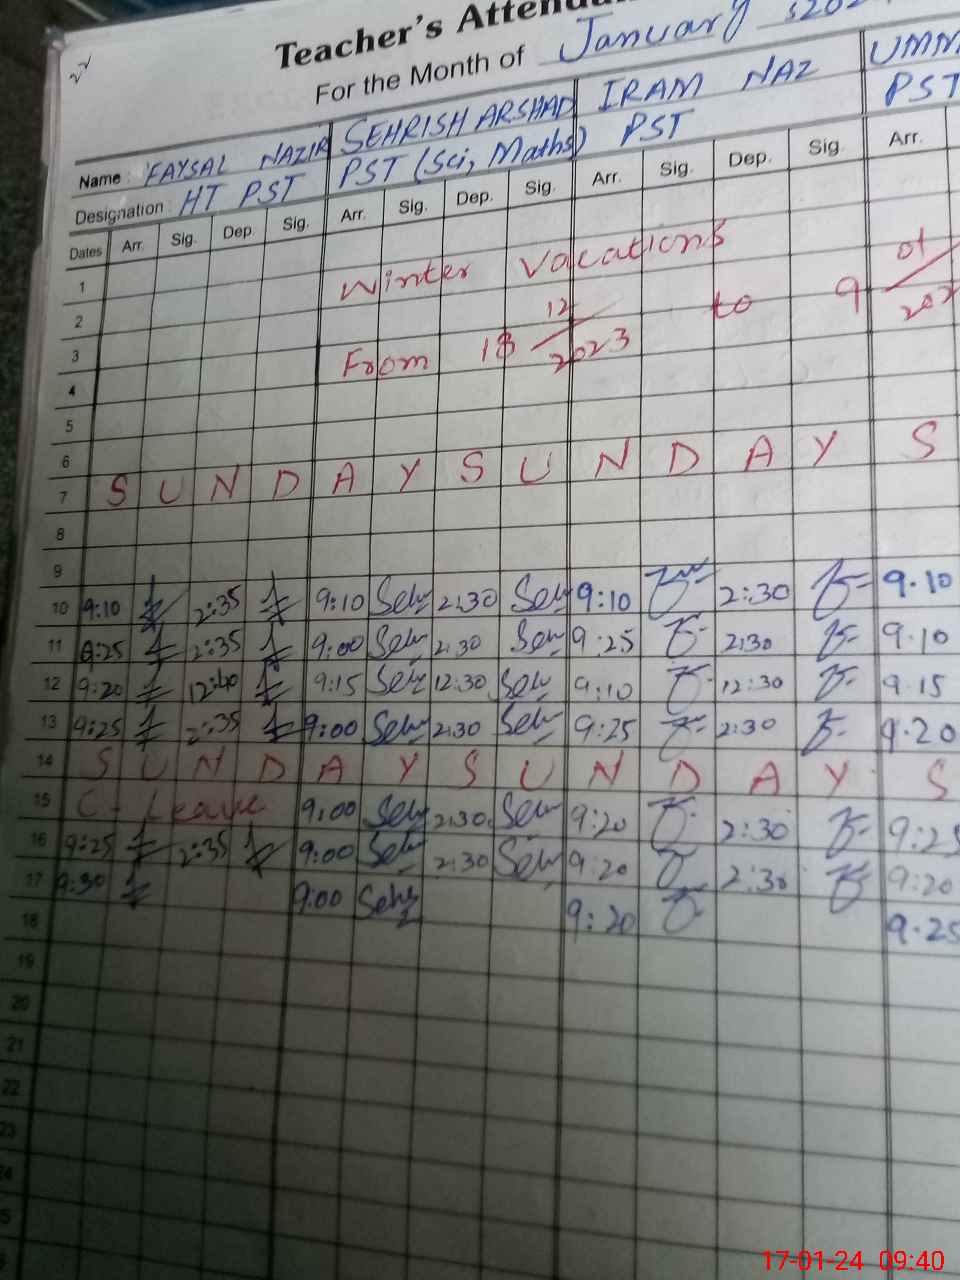 Teacher's
For the Month of January
Name: FAYSAL NAZIR SEHRISH ARSHAD IRAM NAZ
Designation: HT PST PST (Sci, Maths) PST PST
Dates Arr. Sig. Dep. Sig. Arr. Sig. Dep. Sig. Arr. Sig. Dep. Sig. Arr.
1 Winter Vacations
2 12 to 9 01
3 From 18 2023
4
5
6
7 S U N D A Y S U N D A Y S
8
9
10 9:10 2:35 9:10 Seh 2:30 Seh 9:10 2:30 9.10
11 9:25 2:35 9:00 Seh 2:30 Seh 9:25 2:30 9.10
12 9:20 12:40 9:15 Seh 12:30 Seh 9:10 12:30 9.15
13 9:25 2:35 9:00 Seh 2:30 Seh 9:25 2:30 9.20
14 S U N D A Y S U N D A Y S
15 C-Leave 9:00 Seh 2:30 Seh 9:20 2:30 9:25
16 9:25 2:35 9:00 Seh 2:30 Seh 9:20 2:30 9:20
17 9:30 9:00 Seh 9:20 9.25
18
19
20
21
22
23
17-01-24 09:40